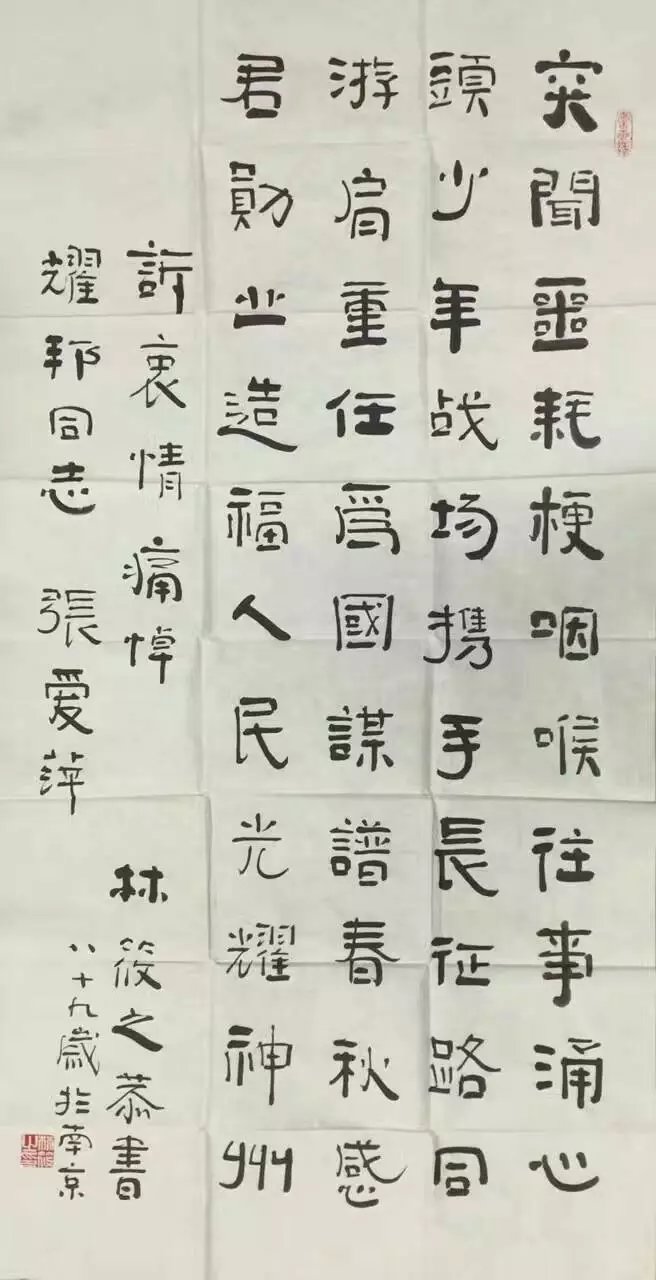 突聞噩耗梗咽喉往事涌心
頭少年战场携手長征路同
游肩重任爲國謀譜春秋感
君勛业造福人民光耀神州
訴衷情痛悼
耀邦同志 張爱萍
林筱之恭書
八十九歲於南京